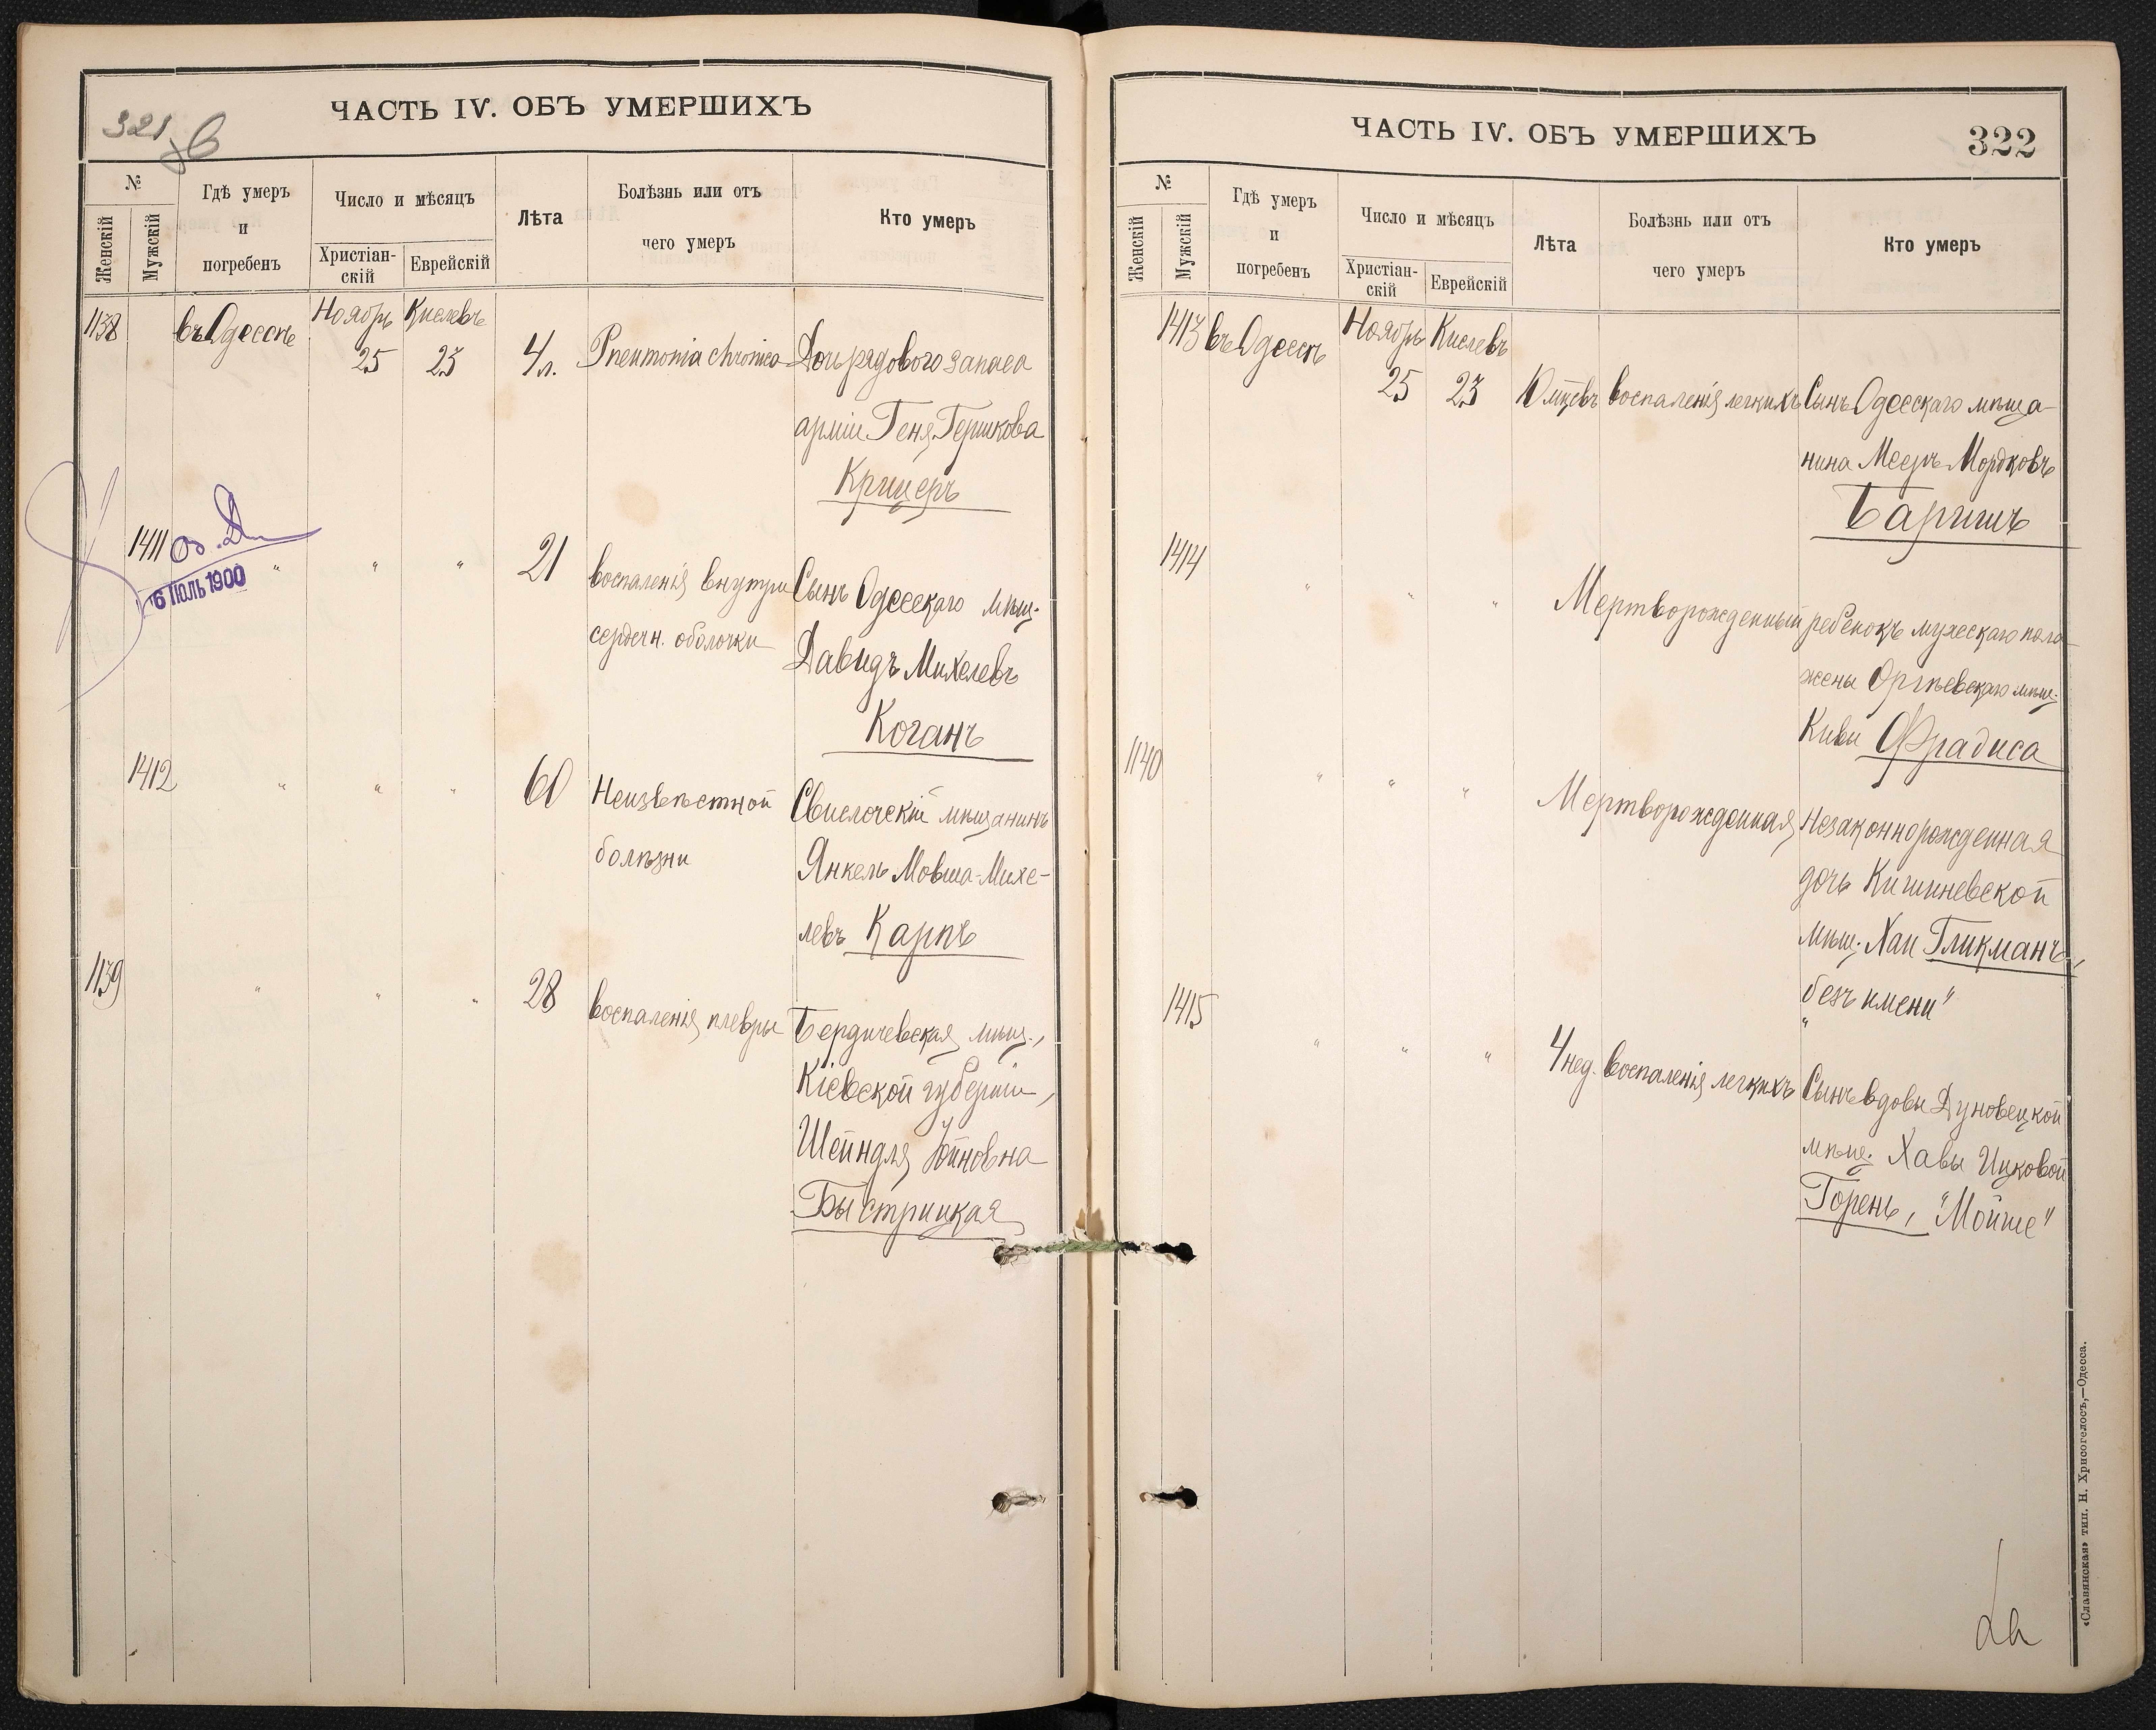 ЧАСТЬ IV. ОБЪ УМЕРШИХЪ
321
№
Женскій
Мужскій
Гдѣ умеръ
и
погребенъ
Число и мѣсяцъ
Христіан-
скій
Еврейскій
Лѣта
Болѣзнь или отъ
чего умеръ
Кто умеръ
1138 въ Одессѣ Ноябрь Кислевъ
25 23 4 л. Pneumonia chronica Дочь рядового запаса
арміи Геня Гершкова
Крицеръ
1411 " " " 21 воспаленія внутри Сынъ Одесскаго мѣщ.
6 ІЮЛЬ 1900
сердечн. оболочки Давидъ Михелевъ
Коганъ
1412 " " " 60 Неизвѣстной Свислочскій мѣщанинъ
болѣзни Янкель Мовша-Михе-
левъ Карпъ
1139 " " " 28 воспаленія плевры Бердичевская мѣщ.,
Кіевской губерніи,
Шейндля Іойновна
Быстрицкая
ЧАСТЬ IV. ОБЪ УМЕРШИХЪ
322
№
Женскій
Мужскій
Гдѣ умеръ
и
погребенъ
Число и мѣсяцъ
Христіан-
скій
Еврейскій
Лѣта
Болѣзнь или отъ
чего умеръ
Кто умеръ
1413 въ Одессѣ Ноябрь Кислевъ
25 23 10 мцевъ воспаленія легкихъ Сынъ Одесскаго мѣща-
нина Мееръ Мордковъ
Баришъ
1414 " " " Мертворожденный ребенокъ мужескаго пола
жены Оргѣевскаго мѣщ.
Киви Фрадиса
1140 " " " Мертворожденная Незаконнорожденная
дочь Кишиневской
мѣщ. Хаи Гликманъ,
"безъ имени"
1415 " " " 4 нед. воспаленія легкихъ Сынъ вдовы Дуновецкой
мѣщ. Хавы Ицковой
Горень, "Мойше"
«Славянская» тип. Н. Хрисогелосъ,—Одесса.